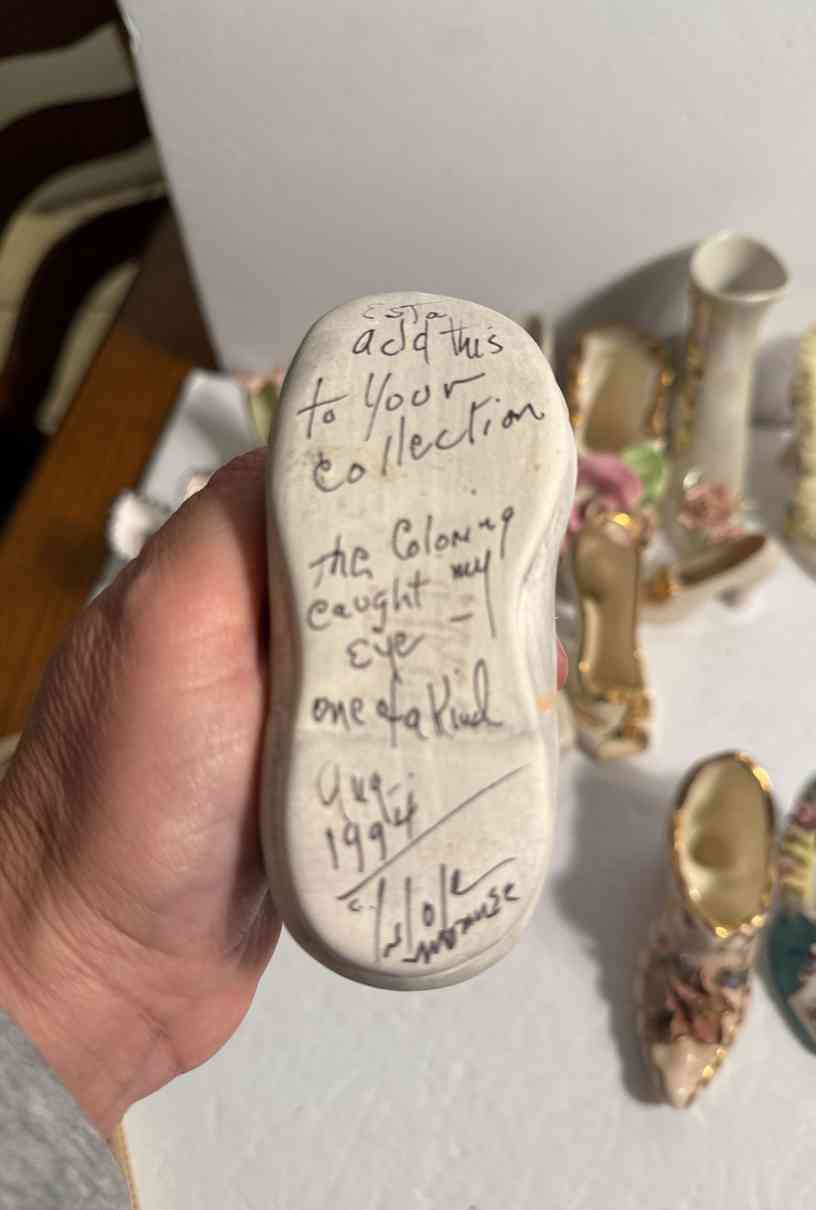 Esta
add this
to your
collection
the Coloring
caught my
Eye -
one of a kind
Aug-
1994